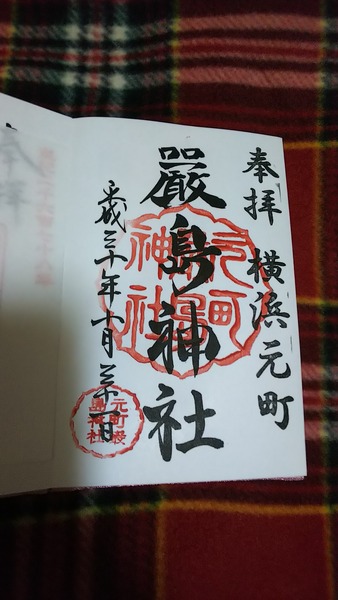 奉拝 横浜元町
嚴島神社
平成三十年十月三十一日
元町
嚴島
神社
元町嚴
島神社